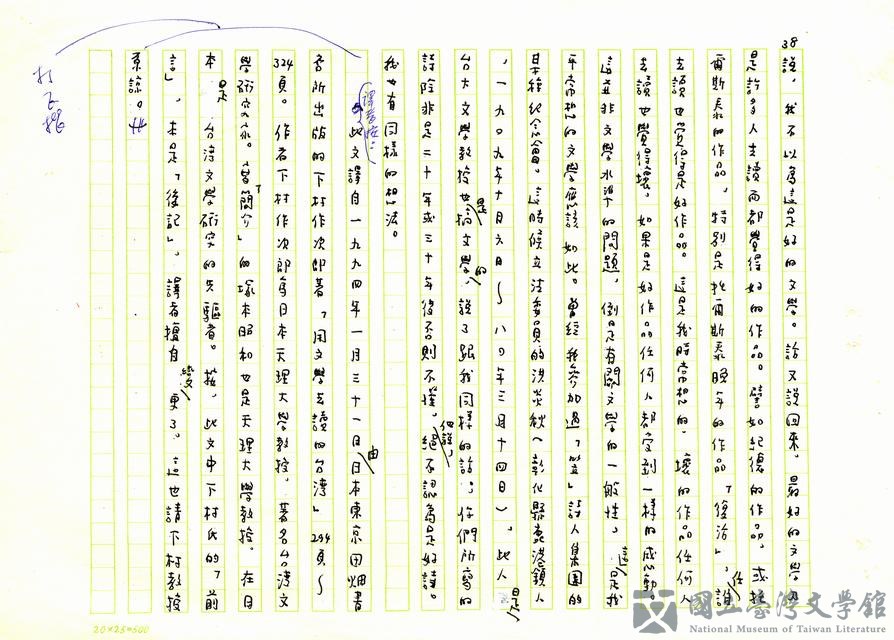 38
說，我不以為這是好的文學。話又說回來，最好的文學乃
是許多人去讀而都覺得好的作品。譬如紀德的作品，或托
爾斯泰的作品，特別是托爾斯泰晚年的作品「復活」，誰任
去讀也覺得是好作品。這是我時常想的，壞的作品任何人
去讀也覺得壞，如果是好作品任何人都受到一樣的感動。
這並非文學水準的問題，倒是有關文學的一般性，這是我
平常想的文學應該如此。曾經我參加過「笠」詩人集團的
某種紀念會。這時候立法委員的洪炎秋（彰化縣鹿港鎮人
，一九〇九年十月六日～八〇年三月十四日），此人是
台大文學教授是搞文學的，說了跟我同樣的話；你們所寫的
詩除非是二十年或三十年後否則不懂，他說，絕不認為是好詩。
我也有同樣的想法。
譯者按：此文譯自一九九四年一月三十一日由日本東京田畑書
店所出版的下村作次郎著，「用文學去讀的台灣」294頁～
324頁。作者下村作次郎為日本天理大學教授，著名台灣文
學研究家。「簡介」的塚本昭和也是天理大學教授。在日
本是台灣文學研究的先驅者。按，此文中下村氏的「前
言」，本是「後記」，譯者擅自變更了。這也請下村教授
原諒。
打飞機
20×25=500
國立臺灣文學館
National Museum of Taiwan Literature